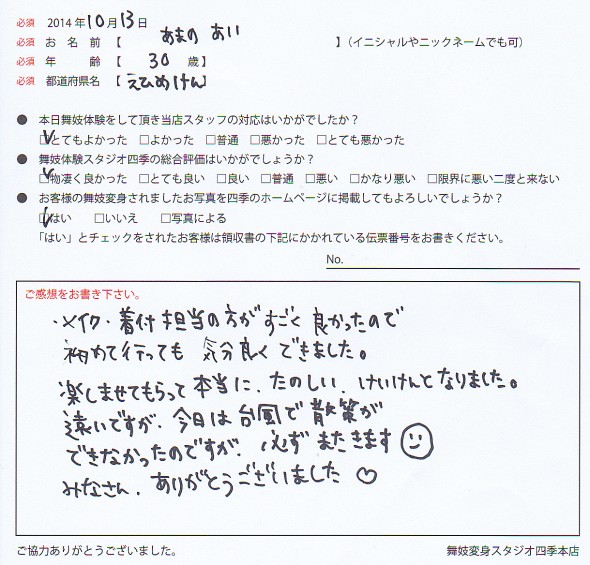 必須 2014年10月13日
必須 お名前【 あまの あい 】（イニシャルやニックネームでも可）
必須 年齢【 30 歳】
必須 都道府県名【えひめけん】
● 本日舞妓体験をして頂き当店スタッフの対応はいかがでしたか？
☑とてもよかった □よかった □普通 □悪かった □とても悪かった
● 舞妓体験スタジオ四季の総合評価はいかがでしょうか？
☑物凄く良かった □とても良い □良い □普通 □悪い □かなり悪い □限界に悪い二度と来ない
● お客様の舞妓変身されましたお写真を四季のホームページに掲載してもよろしいでしょうか？
☑はい □いいえ □写真による
「はい」とチェックをされたお客様は領収書の下記にかかれている伝票番号をお書きください。
No.
ご感想をお書き下さい。
・メイク・着付担当の方がすごく良かったので
初めて行っても気分良くできました。
楽しませてもらって本当に、たのしい、けいけんとなりました。
遠いですが、今日は台風で散策が
できなかったのですが、必ずまたきます☺
みなさん、ありがとうございました♡
ご協力ありがとうございました。
舞妓変身スタジオ四季本店